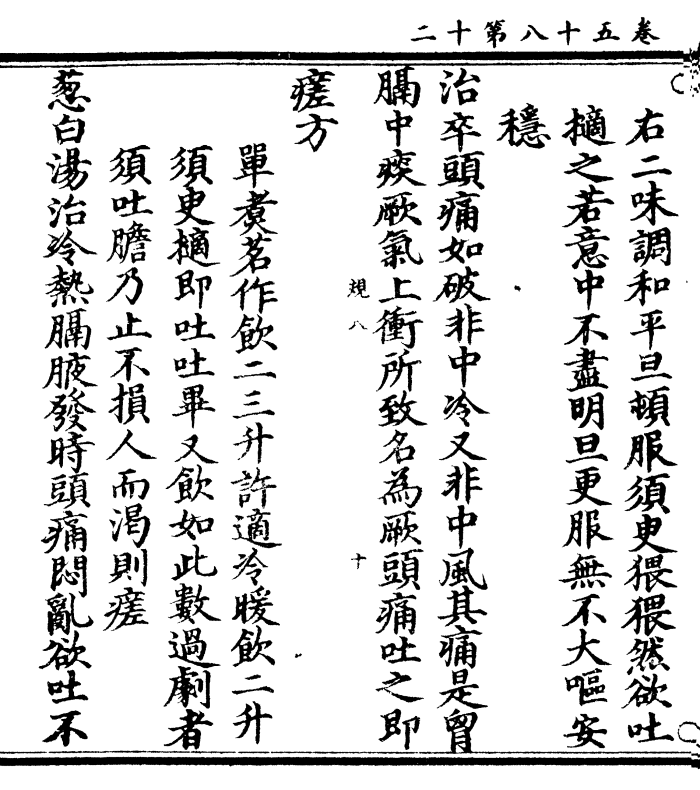 卷五十八第十二
右二味調和平旦頓服須臾猥猥然欲吐
擿之若意中不盡明旦更服無不大嘔安
穩
治卒頭痛如破非中冷又非中風其痛是胷
膈中痰厥氣上衝所致名為厥頭痛吐之即
規八 十
瘥方
單煑茗作飲二三升許適冷暖飲二升
須臾擿即吐吐畢又飲如此數過劇者
須吐膽乃止不損人而渴則瘥
葱白湯治冷熱膈痰發時頭痛悶亂欲吐不